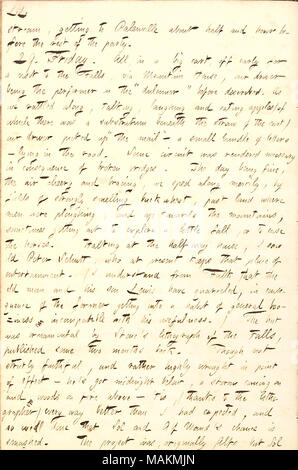 stream, getting to Palenville about half and hour be
fore the rest of the party.
29. Friday. All in a big cart off early for
a visit to the Falls via Mountain House, our driver
being the performer on the dulcimer before described. As
we rattled along, talking, laughing and eating apples (of
which there was a substratum beneath the straw of the cart)
our driver picked up "the mail" — a small bundle of letters
— lying in the road. Some circuit was rendered necessary
in consequence of broken bridges. The day being fine,
the air cheery and bracing, we sped along merrily, by
fields of strongly smelling buckwheat, past land where
men were ploughing and up towards the mountains,
sometimes getting out to explore a little fall, or to ease
the horses. Halting at the half way house, I saw
old Peter Schutt, who at present keeps that place of
entertainment. I understand from talk that the
old man and his son Lewis have quarreled, in conse
quence of the former getting into a habit of general boo-
ziness incompatible with his usefulness. The bar
was ornamented by lithograph of the Falls,
published some two months back. Though not
strictly faithful, and rather highly wrought in point
of effect — he's got midnight below, a storm coming on
and woods on fire above — 'tis, (thanks to the litho
grapher) every way better than I had expected, and
so well done that Sol and Alf Waud's chance is
smashed. The project was originally Alf's but Sol